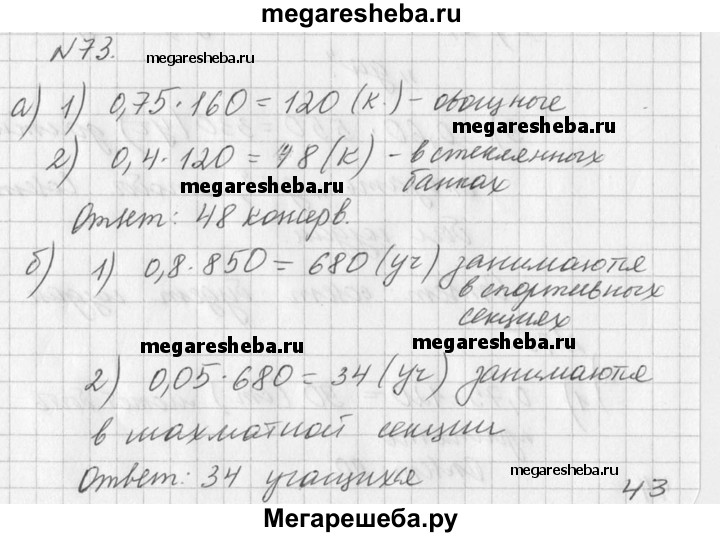 megaresheba.ru
№73.
megaresheba.ru
а) 1) 0,75·160=120 (к.) - овощные
megaresheba.ru
2) 0,4·120=48(к) - в стеклянных
банках
megaresheba.ru
Ответ: 48 консерв.
б) 1) 0,8·850=680(уч) занимаются
в спортивных
секциях
megaresheba.ru
megaresheba.ru
2) 0,05·680=34(уч) занимаются
в шахматной секции
Ответ: 34 учащихся
megaresheba.ru
43
Мегарешеба.ру